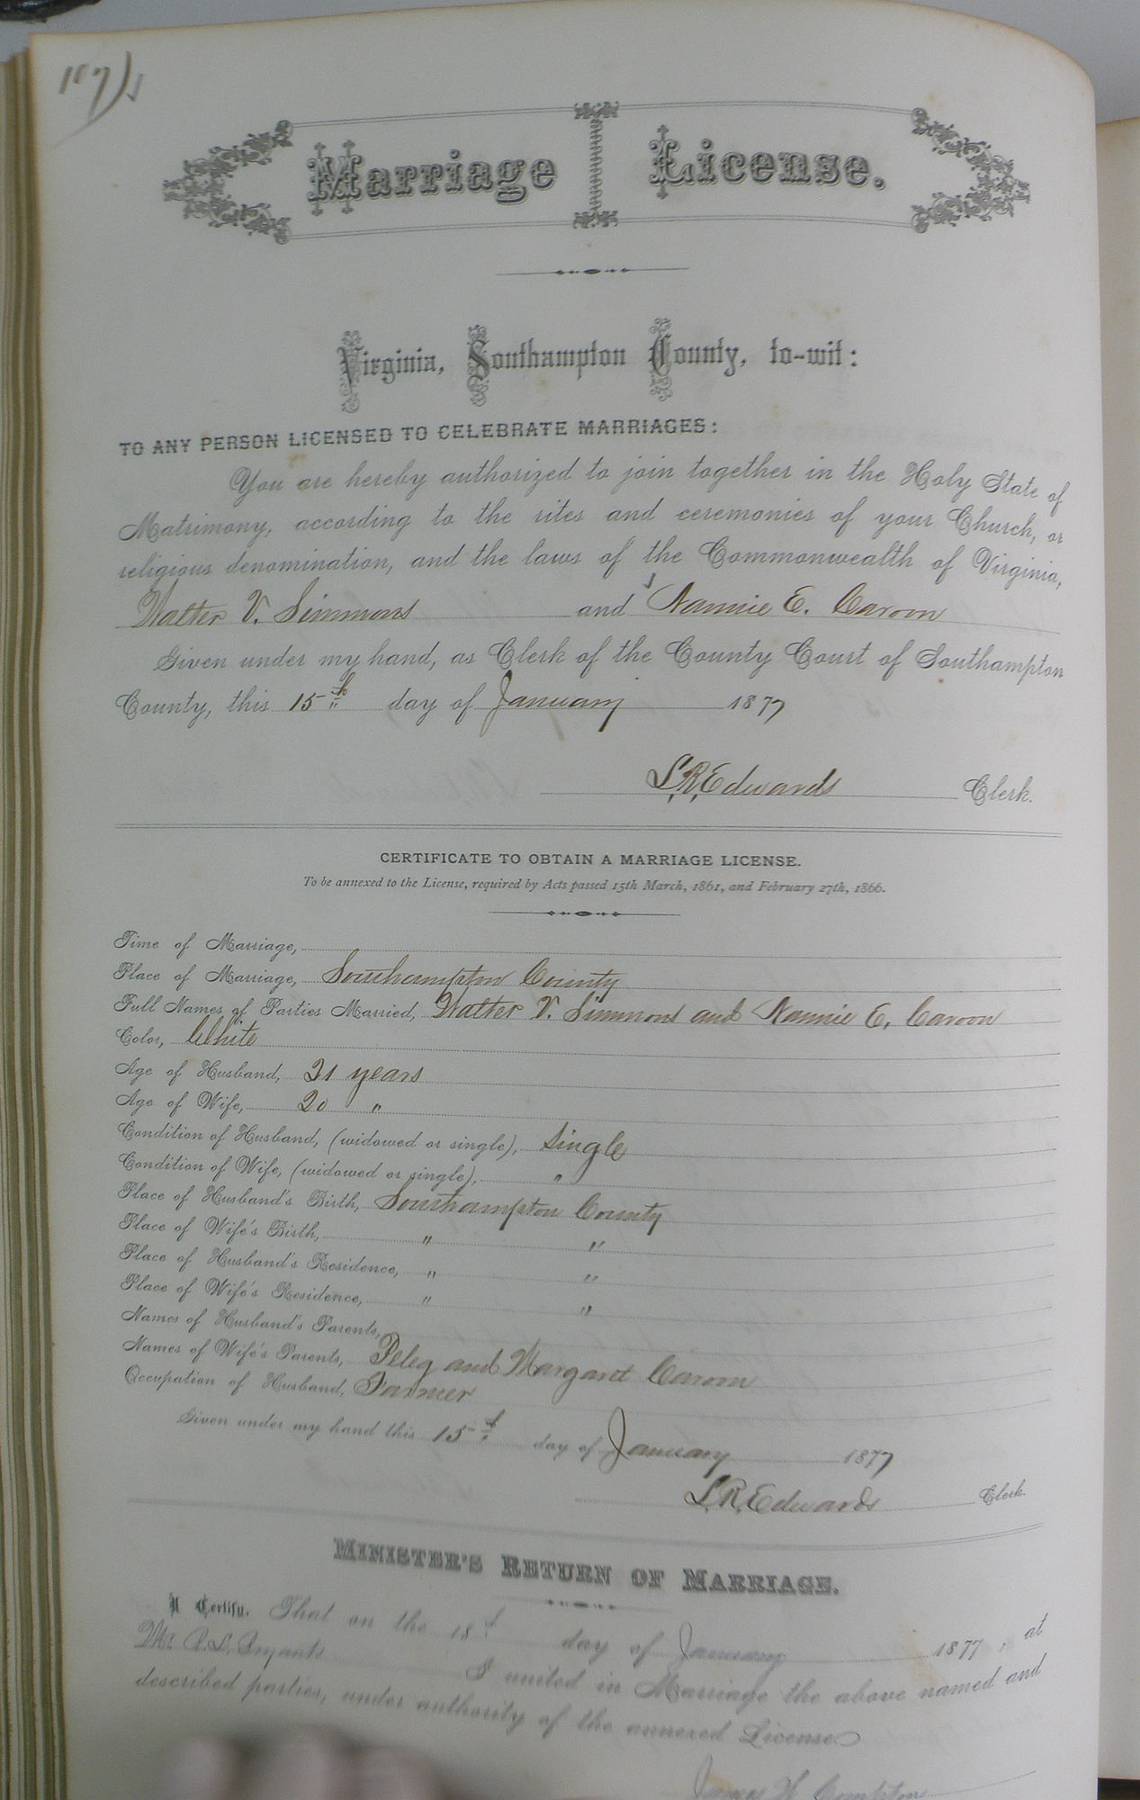 Marriage License.
Virginia, Southampton County, to-wit:
TO ANY PERSON LICENSED TO CELEBRATE MARRIAGES:
You are hereby authorized to join together in the Holy State of
Matrimony, according to the rites and ceremonies of your Church, or
religious denomination, and the laws of the Commonwealth of Virginia,
Walter V. Simmons and Nannie E. Caroon
Given under my hand, as Clerk of the County Court of Southampton
County, this 15th day of January 1877
L.R. Edwards Clerk.
CERTIFICATE TO OBTAIN A MARRIAGE LICENSE.
To be annexed to the License, required by Acts passed 15th March, 1861, and February 27th, 1866.
Time of Marriage,
Place of Marriage, Southampton County
Full Names of Parties Married, Walter V. Simmons and Nannie E. Caroon
Color, White
Age of Husband, 21 years
Age of Wife, 20 "
Condition of Husband, (widowed or single), Single
Condition of Wife, (widowed or single), "
Place of Husband's Birth, Southampton County
Place of Wife's Birth, " "
Place of Husband's Residence, " "
Place of Wife's Residence, " "
Names of Husband's Parents,
Names of Wife's Parents, Peleg and Margaret Caroon
Occupation of Husband, Farmer
Given under my hand this 15th day of January 1877
L.R. Edwards Clerk.
MINISTER'S RETURN OF MARRIAGE.
I Certify, That on the 18th day of January 1877, at
Mr. Bryants I united in Marriage the above named and
described parties, under authority of the annexed License.
James Compton